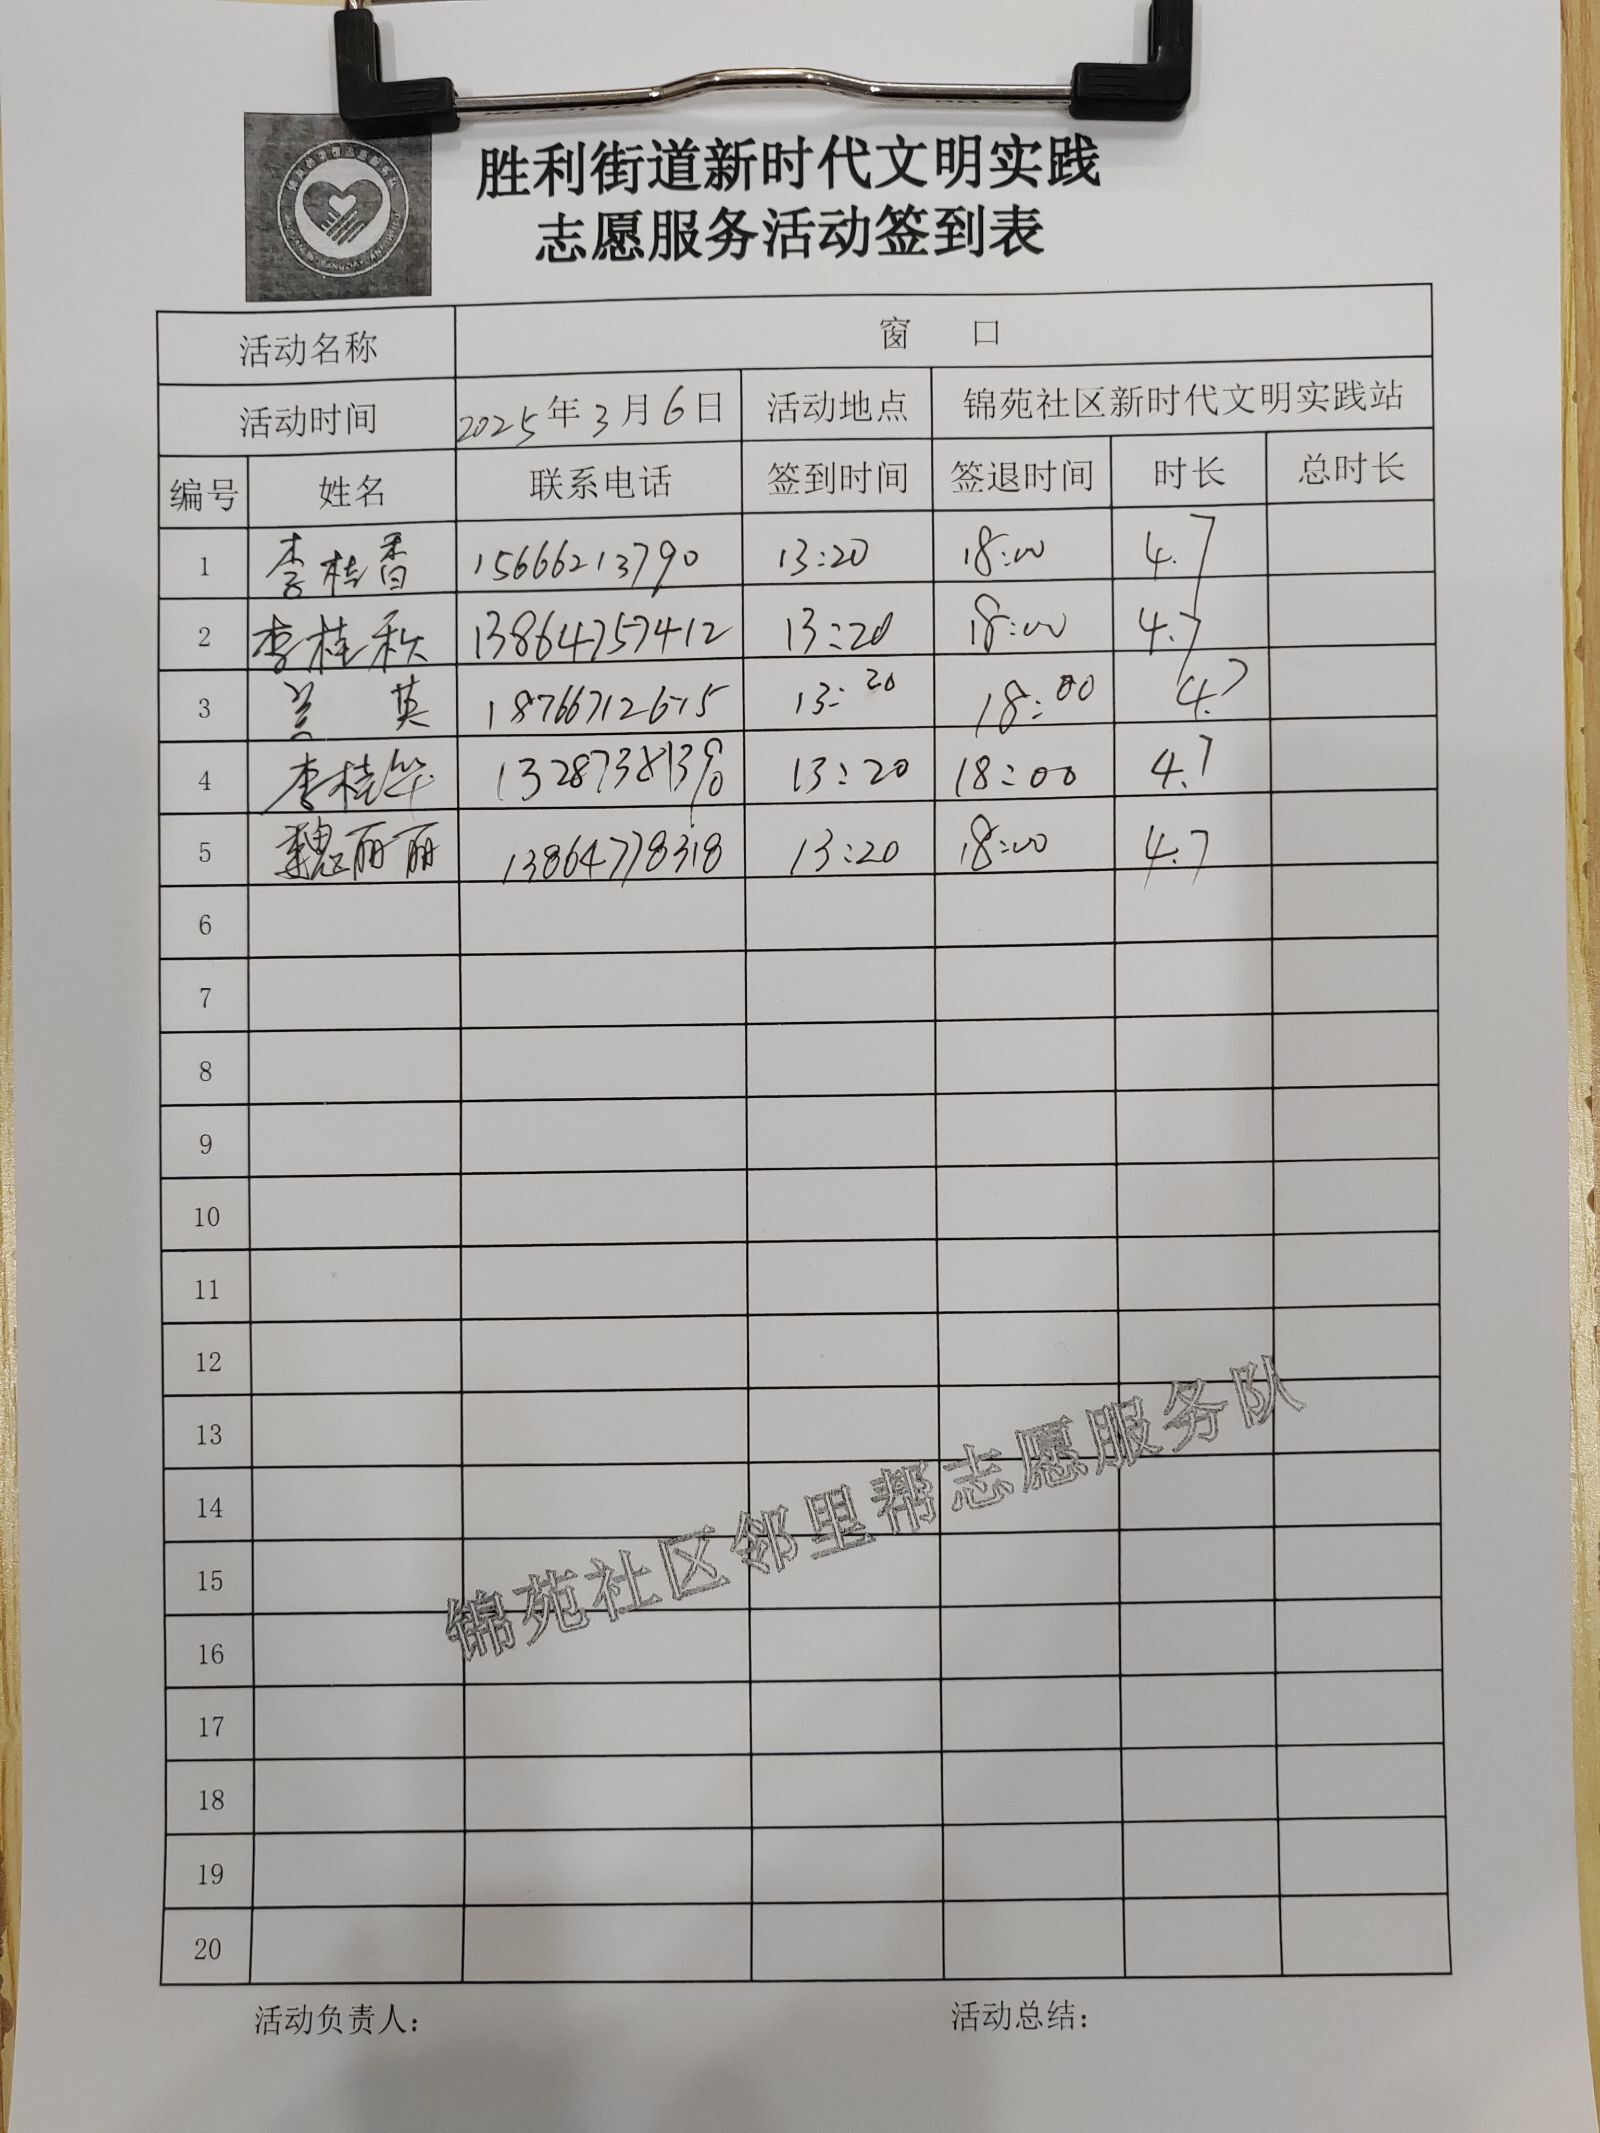 胜利街道新时代文明实践
志愿服务活动签到表
活动名称 窗 口
活动时间 2025年3月6日 活动地点 锦苑社区新时代文明实践站
编号 姓名 联系电话 签到时间 签退时间 时长 总时长
1 李桂香 15666213790 13:20 18:00 4.7
2 李桂秋 13864757412 13:20 18:00 4.7
3 兰 英 18766712675 13:20 18:00 4.7
4 李桂华 13287381390 13:20 18:00 4.7
5 魏丽丽 13864778318 13:20 18:00 4.7
6
7
8
9
10
11
12
13
14
15
16
17
18
19
20
锦苑社区邻里帮志愿服务队
活动负责人: 活动总结: